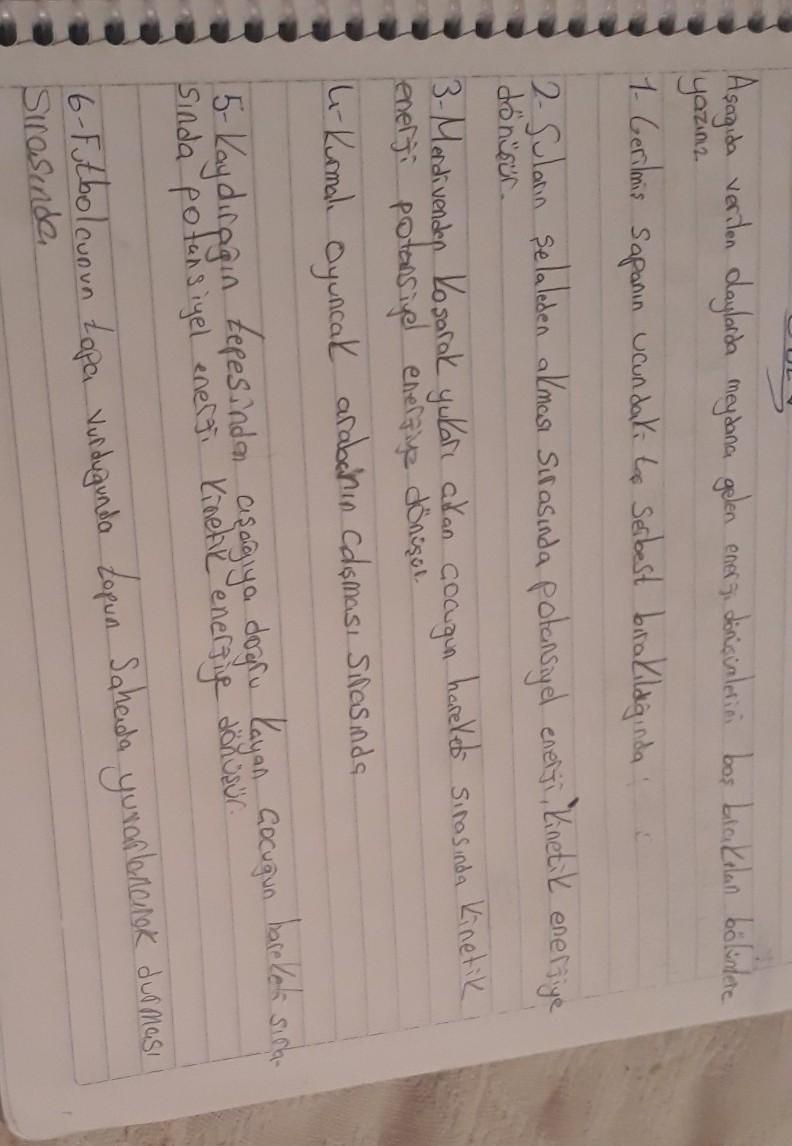 Aşagıda verilen olaylarda meydana gelen enerji dönüşümlerini boş bırakılan bölümlere
yazınız
1- Gerilmiş sapanın ucundaki taş serbest bırakıldığında
2- Suların şelaleden akması sırasında potansiyel enerji, kinetik enerjiye
dönüşür.
3- Merdivenden koşarak yukarı çıkan çocugun hareketi sırasında kinetik
enerji potansiyel enerjiye dönüşür.
4- Kurmalı oyuncak arabanın çalışması sırasında
5- Kaydıragın tepesinden aşagıya dogru kayan çocugun hareketi sıra-
sında potansiyel enerji kinetik enerjiye dönüşür.
6- Futbolcunun topa vurdugunda topun sahada yuvarlanarak durması
sırasında